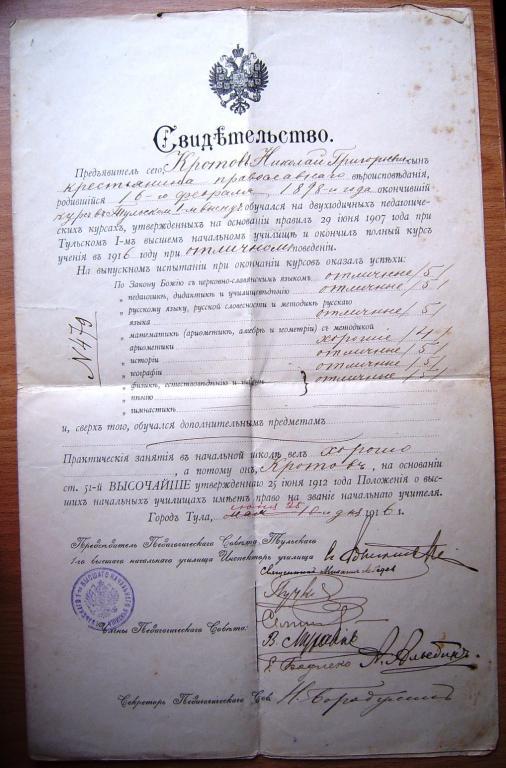 Свидѣтельство.
Предъявитель сего, Кротовъ Николай Григорьевич сын
крестьянина православнаго вѣроисповѣданія,
родившійся 16-го февраля 1898-го года окончившій
курсъ Тульском 1-м высш. обучался на двухгодичныхъ педагогиче-
скихъ курсахъ, утвержденныхъ на основаніи правилъ 29 іюня 1907 года при
Тульскомъ 1-мъ высшемъ начальномъ училищѣ и окончилъ полный курсъ
ученія въ 1916 году при отличномъ поведеніи.
На выпускномъ испытаніи при окончаніи курсовъ оказалъ успѣхи:
По Закону Божію съ церковно-славянскимъ языкомъ отличные /5/
„ педагогикѣ, дидактикѣ и училищевѣдѣнію отличные /5/
„ русскому языку, русской словесности и методикѣ русскаго
языка отличные /5/
„ математикѣ (ариѳметикѣ, алгебрѣ и геометріи) съ методикой
ариѳметики хорошіе /4/
„ исторіи отличные /5/
„ географіи отличные /5/
„ физикѣ, естествовѣдѣнію и отличные /5/
„ пѣнію
„ гимнастикѣ
N 479
и, сверхъ того, обучался дополнительнымъ предметамъ
Практическія занятія въ начальной школѣ велъ хорошо
, а потому онъ, Кротовъ, на основаніи
ст. 51-й ВЫСОЧАЙШЕ утвержденнаго 25 іюня 1912 года Положенія о выс-
шихъ начальныхъ училищахъ имѣетъ право на званіе начальнаго учителя.
Городъ Тула, дня 1916 г.
Предсѣдатель Педагогическаго Совѣта Тульскаго
1-го высшаго начальнаго училища Инспекторъ училища
Священникъ
Члены Педагогическаго Совѣта:
Секретарь Педагогическаго Сов.